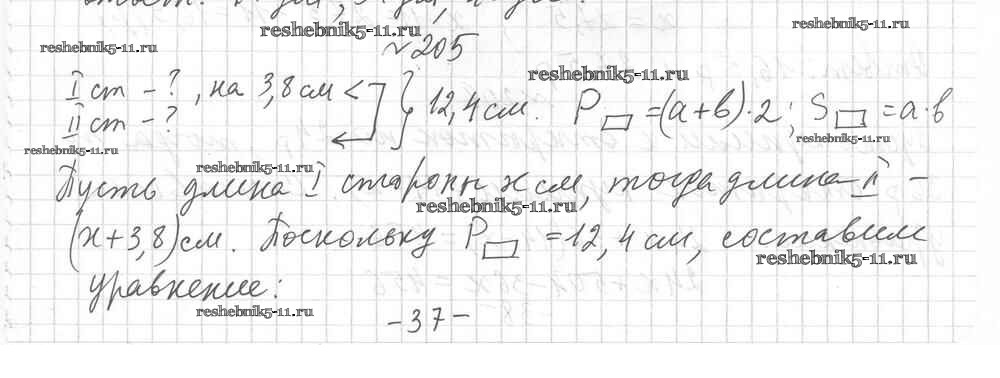 reshebnik5-11.ru
reshebnik5-11.ru
reshebnik5-11.ru
№205
reshebnik5-11.ru
I ст - ?, на 3,8 см < } 12,4 см. P▭ = (a+b)·2; S▭ = a·b
II ст - ?
reshebnik5-11.ru
reshebnik5-11.ru
Пусть длина I стороны x см, тогда длина II -
reshebnik5-11.ru
(x+3,8) см. Поскольку P▭ = 12,4 см, составим
reshebnik5-11.ru
уравнение:
reshebnik5-11.ru
-37-